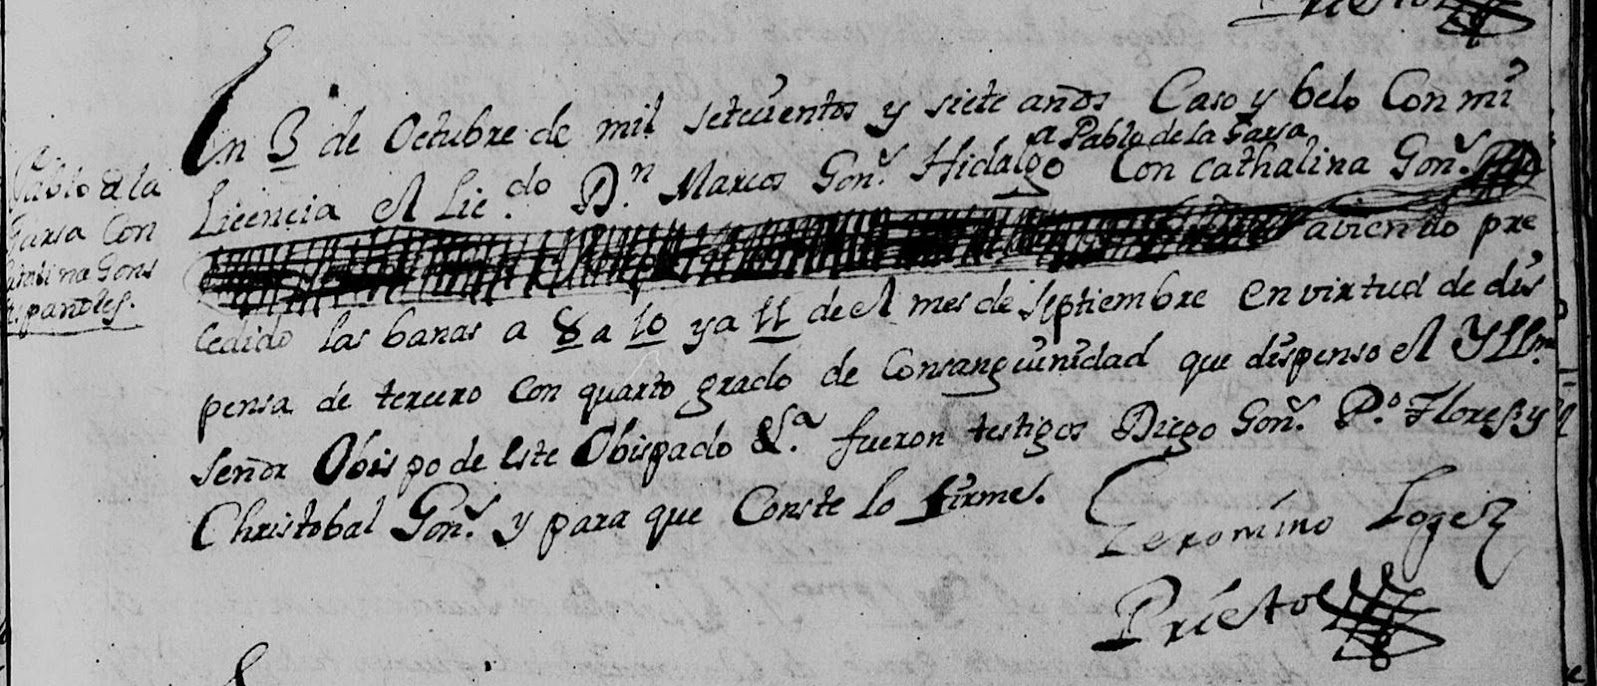 Prieto
En 3 de Octubre de mil setecientos y siete años Caso y belo Con mi
a Pablo de la Garsa
Licencia el Lic.do D.n Marcos Gonz. Hidalgo Con Cathalina Gonz.
aviendo pre
cedido las banas a 8 a 10 y a 11 de el mes de Septiembre en virtud de dis
pensa de tercero con quarto grado de Consanguinidad que dispenso el Yllmo
Señor Obispo de este Obispado &.a fueron testigos Diego Gonz. P.o Flores y
Christobal Gonz. y para que Conste lo firme.
Geronimo Lopez
Prieto
Pablo de la
Garsa Con
Gons
españoles.